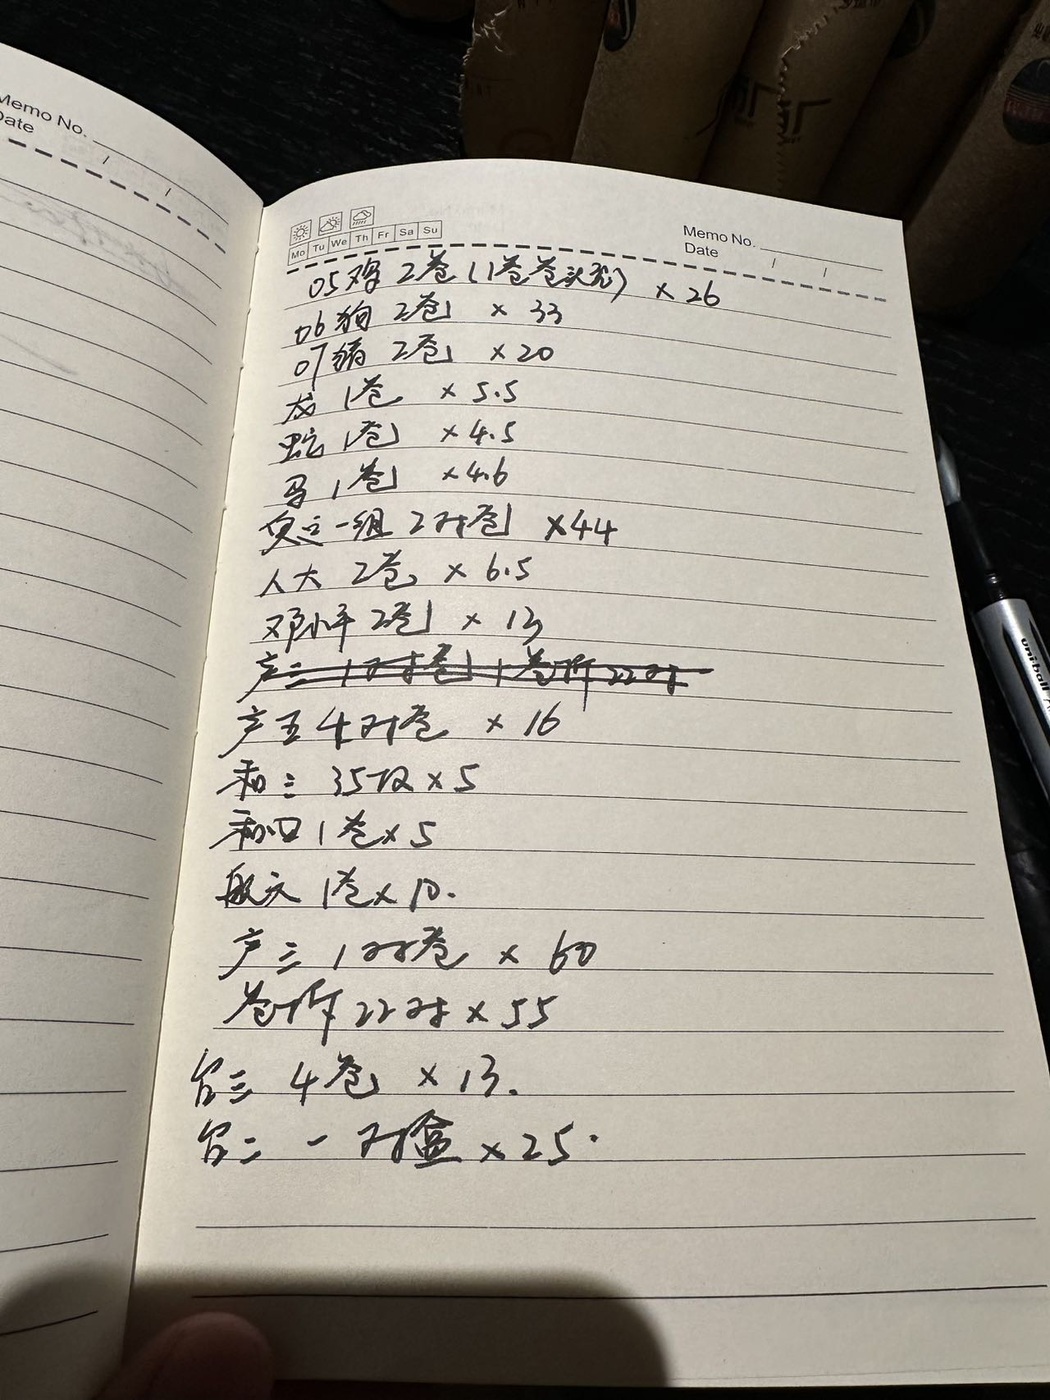 Memo No.
Date / /
Mo Tu We Th Fr Sa Su
Memo No.
Date / /
05鸡 2卷(1卷卷头光) × 26
06狗 2卷 × 33
07猪 2卷 ×20
龙 1卷 × 5.5
蛇 1卷 ×4.5
马 1卷 ×4.6
一组 2对卷 ×44
人大 2卷 × 6.5
邓小平 2卷 × 13
产三 1对卷 1卷拆22对
产五 4对卷 × 16
和三 35枚 × 5
和四 1卷 × 5
航天 1卷 × 10.
产三 1对卷 × 60
卷拆 22对 × 55
台三 4卷 × 13.
台二 一对盒 × 25.
uniball